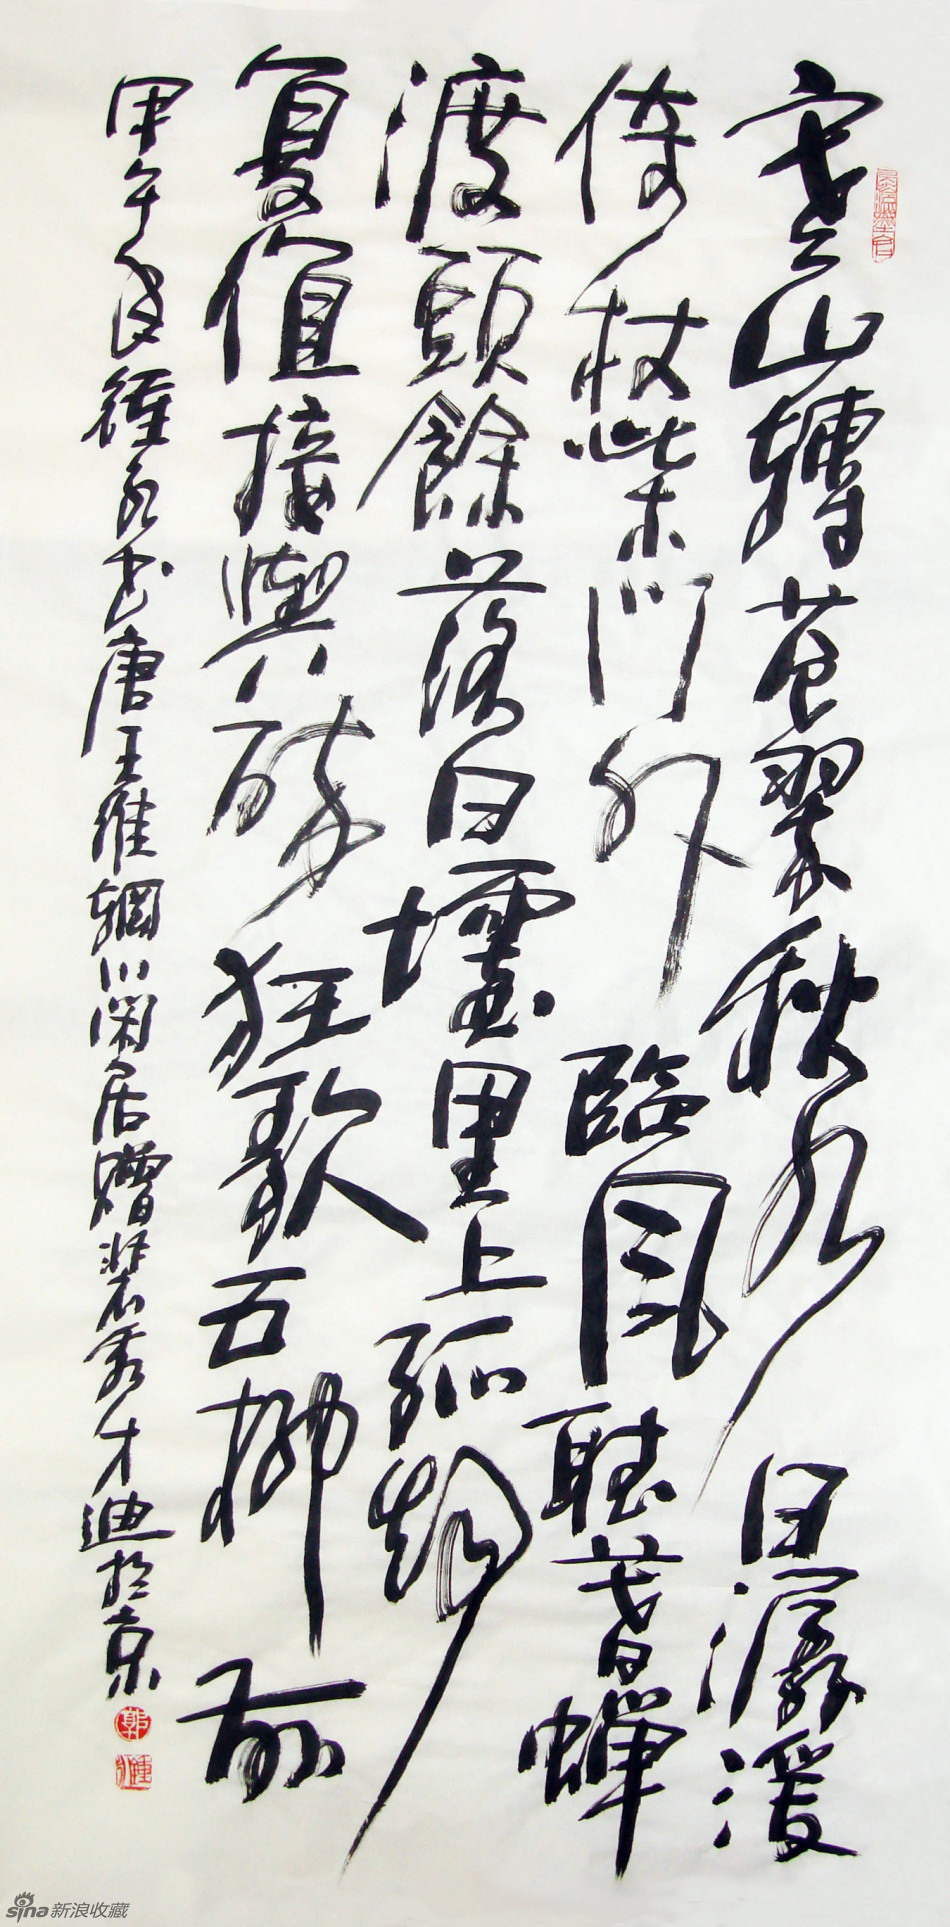 寒山轉蒼翠秋水日潺湲
倚杖柴門外臨風聽暮蟬
渡頭餘落日墟里上孤烟
复值接輿醉狂歌五柳前
甲午鍾永书唐王維輞川閑居贈裴秀才迪於京
郭
sina新浪收藏